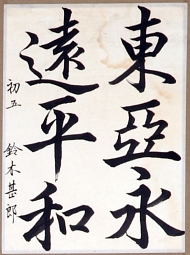 東亞永
遠平和
初五 鈴木甚郎